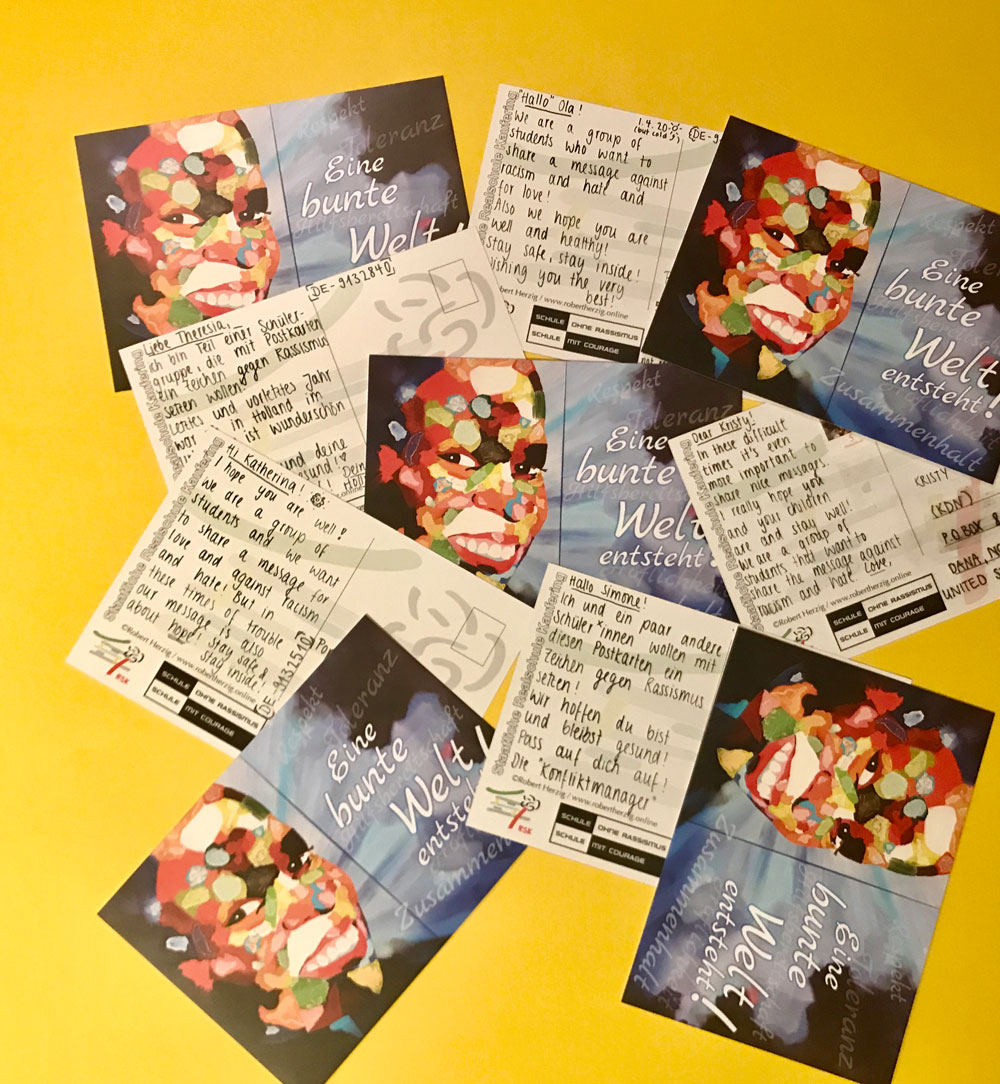 Respekt
Toleranz
Eine
bunte
Hilfsbereitschaft
Welt!
Staatliche Realschule Kaufering
"Hallo" Ola!
1.4.20
(but cold)
DE-913
We are a group of
students who want to
share a message against
racism and hate and
for love!
Also we hope you are
well and healthy!
Stay safe, stay inside!
Wishing you the very
best!
Robert Herzig / www.robertherzig.online
SCHULE OHNE RASSISMUS
SCHULE MIT COURAGE
Respekt
Toleranz
Eine
bunte
Welt
entsteht!
Zusammenhalt
Liebe Theresia,
DE-9132840
ich bin Teil einer Schüler-
gruppe, die mit Postkarten
ein Zeichen gegen Rassismus
setzen wollen!
letztes und vorletztes Jahr
war in Holland im
ist wunderschön
und deine
gesund!
Dein
Respekt
Toleranz
Eine
bunte
Hilfsbereitschaft
Welt
entsteht!
Höflichkeit
Staatliche Realschule Kaufering
Dear Kristy!
In these difficult
times it's even
more important to
share nice messages.
I really hope you
and your children
are and stay well!
We are a group of
students that want to
share the message against
racism and hate. Love,
©Robert Herzig / www.robertherzig.online
SCHULE OHNE RASSISMUS
SCHULE MIT COURAGE
KRISTY
(KDN)
P.O.BOX
DANA, NC
UNITED S
Staatliche Realschule Kaufering
Hi Katherina!
I hope you are well!
We are a group of
students and we want
to share a message for
love and against racism
and hate! But in
these times of trouble
our message is also
about hope! Stay safe &
stay inside!
DE-9132510
Po
©Robert Herzig / www.robertherzig.online
RSK
SCHULE OHNE RASSISMUS
SCHULE MIT COURAGE
Staatliche Realschule Kaufering
Hallo Simone!
Ich und ein paar andere
Schüler*innen wollen mit
diesen Postkarten ein
Zeichen gegen Rassismus
setzen!
Wir hoffen du bist
und bleibst gesund!
Pass auf dich auf!
Die "Konfliktmanager"
©Robert Herzig / www.robertherzig.online
RSK
SCHULE OHNE RASSISMUS
SCHULE MIT COURAGE
Respekt
Toleranz
Eine
bunte
Welt!
entsteht
Zusammenhalt
Respekt
Toleranz
Eine
bunte
Welt!
entsteht!
Zusammenhalt